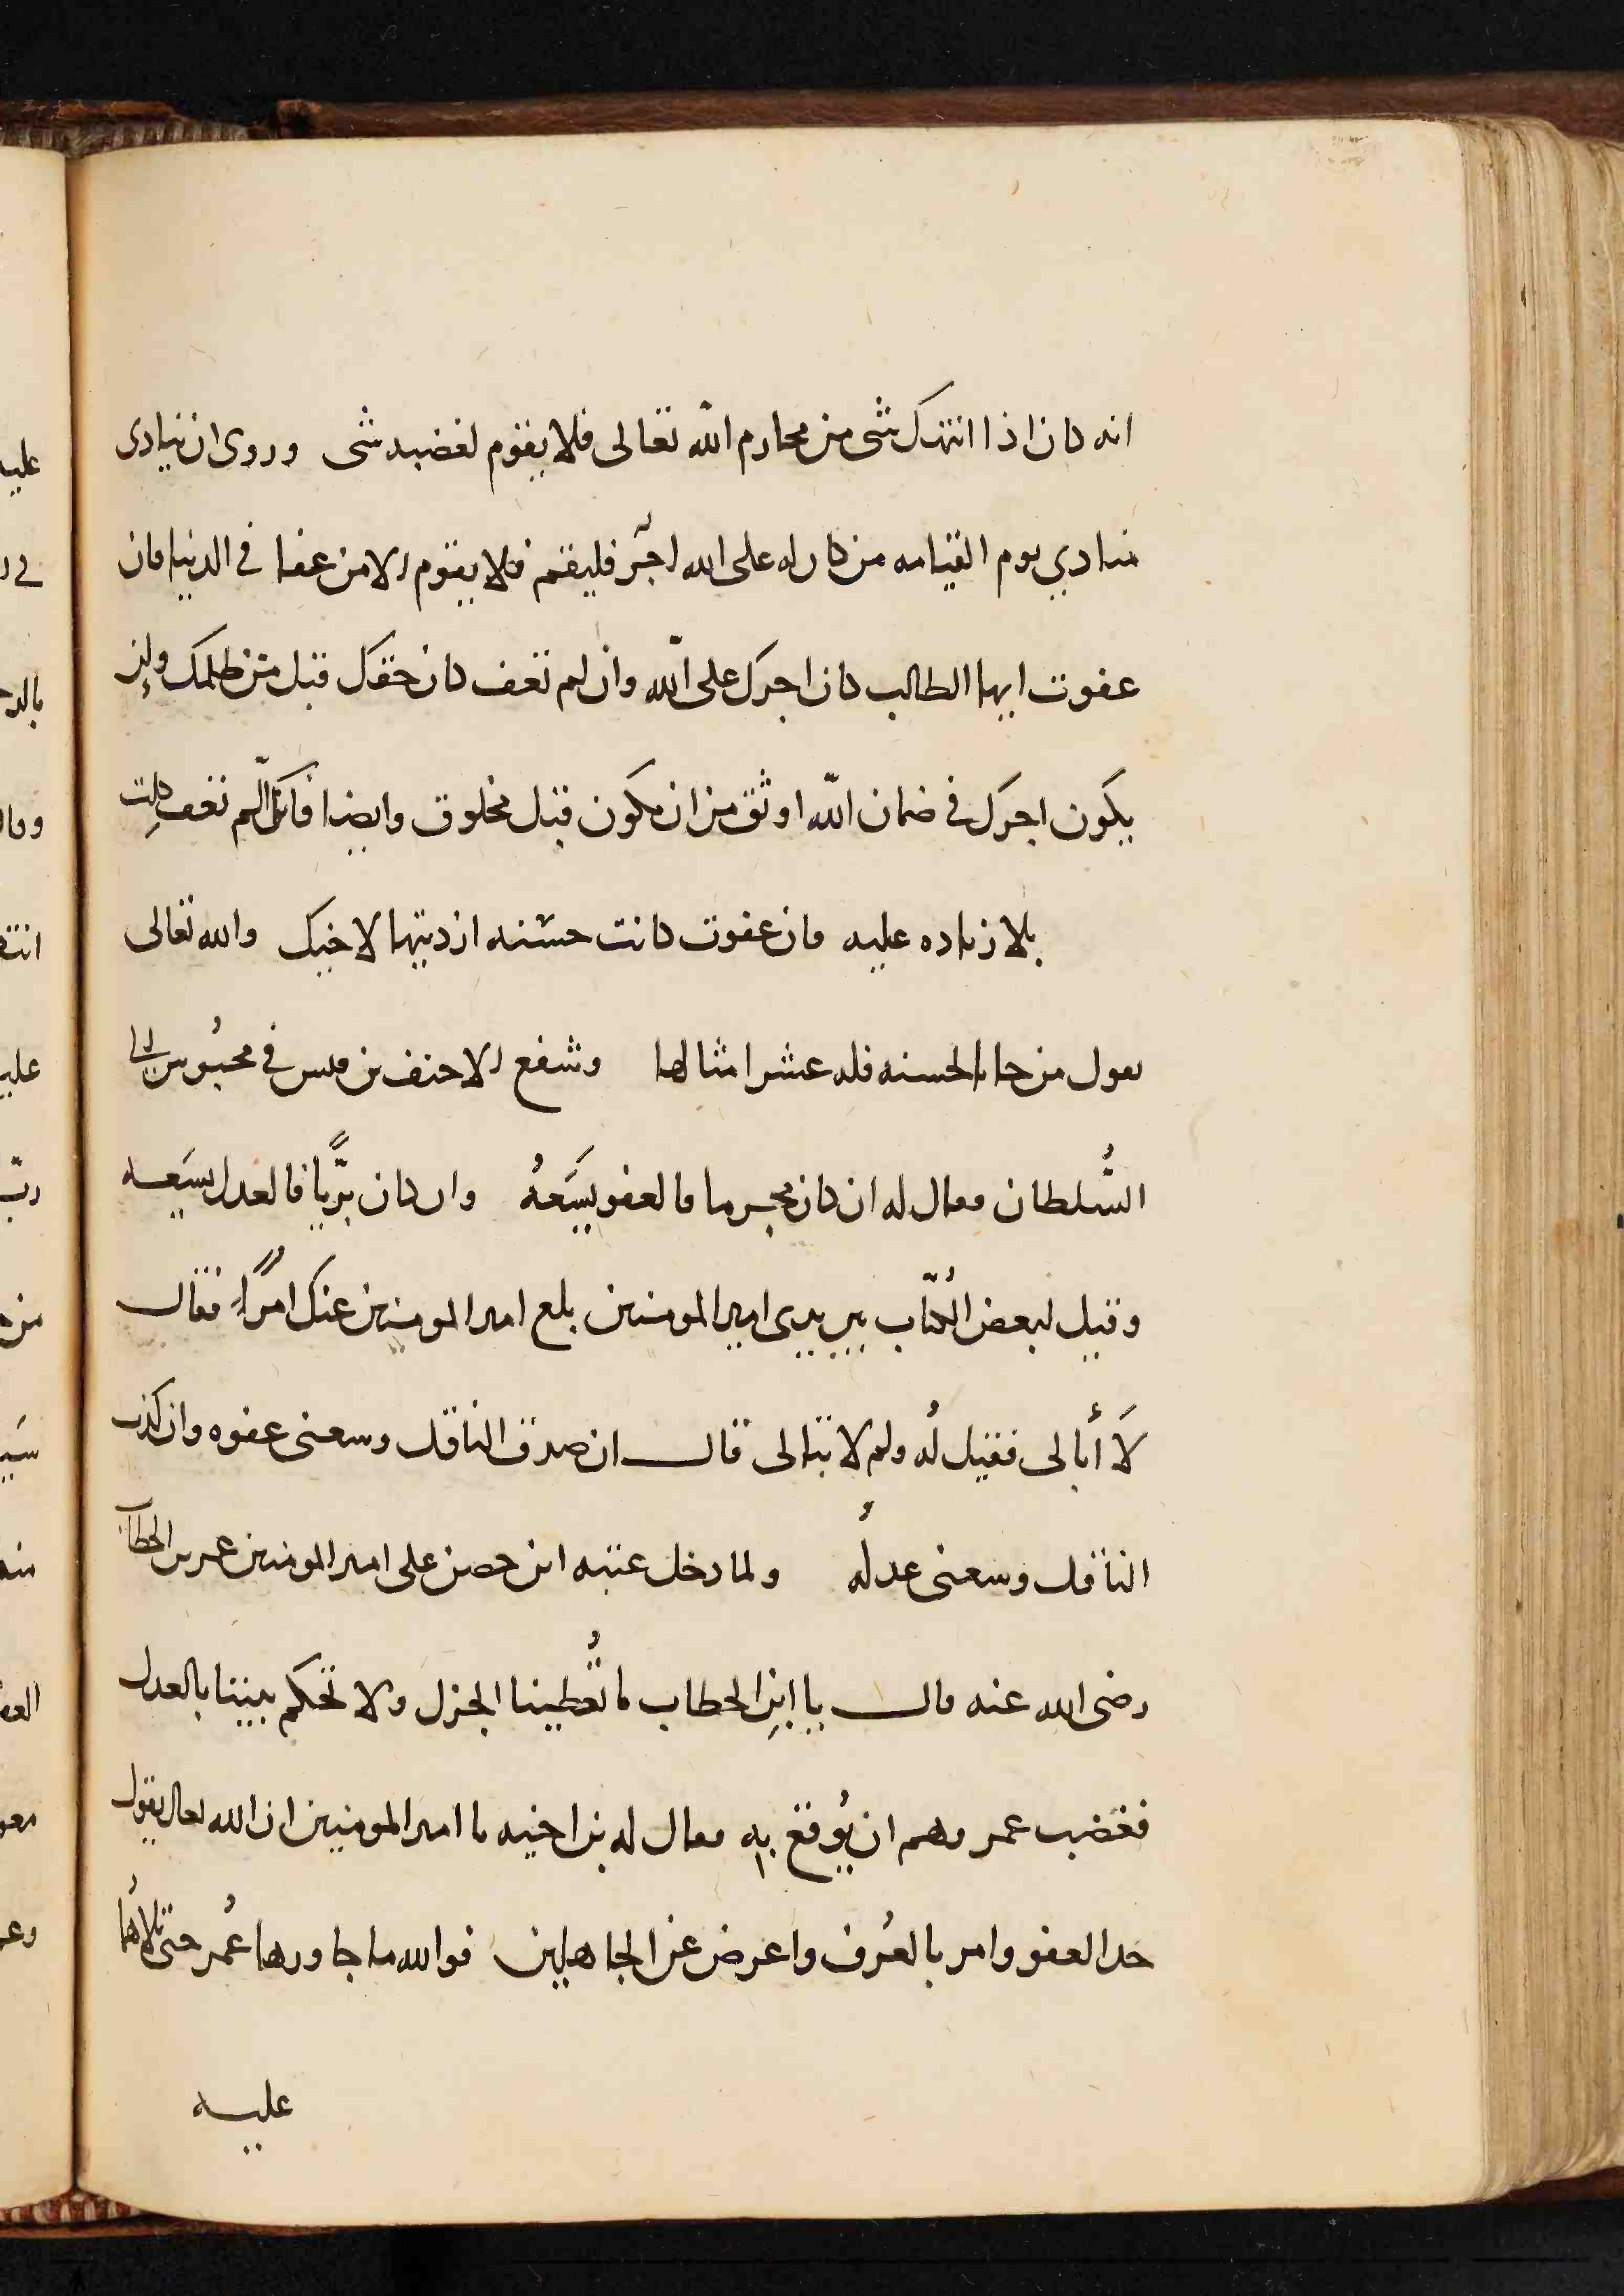 انه كان اذا انتهك شى من محارم الله تعالى فلا يقوم لغضبه شى وروى ان ينادى
منادي يوم القيامه من كان له على الله اجر فليقم فلا يقوم الا من عفا فى الدنيا فان
عفوت ايها الطالب كان اجرك على الله وان لم تعف كان حقك قبل من ظلمك ولئن
يكون اجرك فى ضمان الله اوثق من ان يكون قبل مخلوق وايضا فانك ان لم تعف نلت
بلا زياده عليه فان عفوت كانت حسنه ازديتها لاخيك والله تعالى
يقول من جا بالحسنه فله عشر امثالها وشفع الاحنف بن قيس فى محبوس الى
السُّلطان فقال له ان كان مجرما فالعفو يسَعهُ وان كان بريًّا فالعدل يسَعه
وقيل لبعض الكُتّاب بين يدى امير المومنين بلغ امير المومنين عنك امرًا فقال
لَا أبالى فقيل لهُ ولم لا تبالى قال ان صدق الناقل وسعنى عفوه وان كذب
الناقل وسعنى عدلهُ ولما دخل عتبه ابن حصن على امير المومنين عمر بن الخطاب
رضى الله عنه قال يا ابنِ الخطاب ما تُعطينا الجزل ولا تحكم بيننا بالعدل
فغضب عمر وهم ان يُوقع به فقال له بن اخيه يا امير المومنين ان الله تعالى يقول
خذ العفو وامر بالعُرف واعرض عن الجاهلين فوالله ما جاورها عُمر حتى تلاهُا
عليه